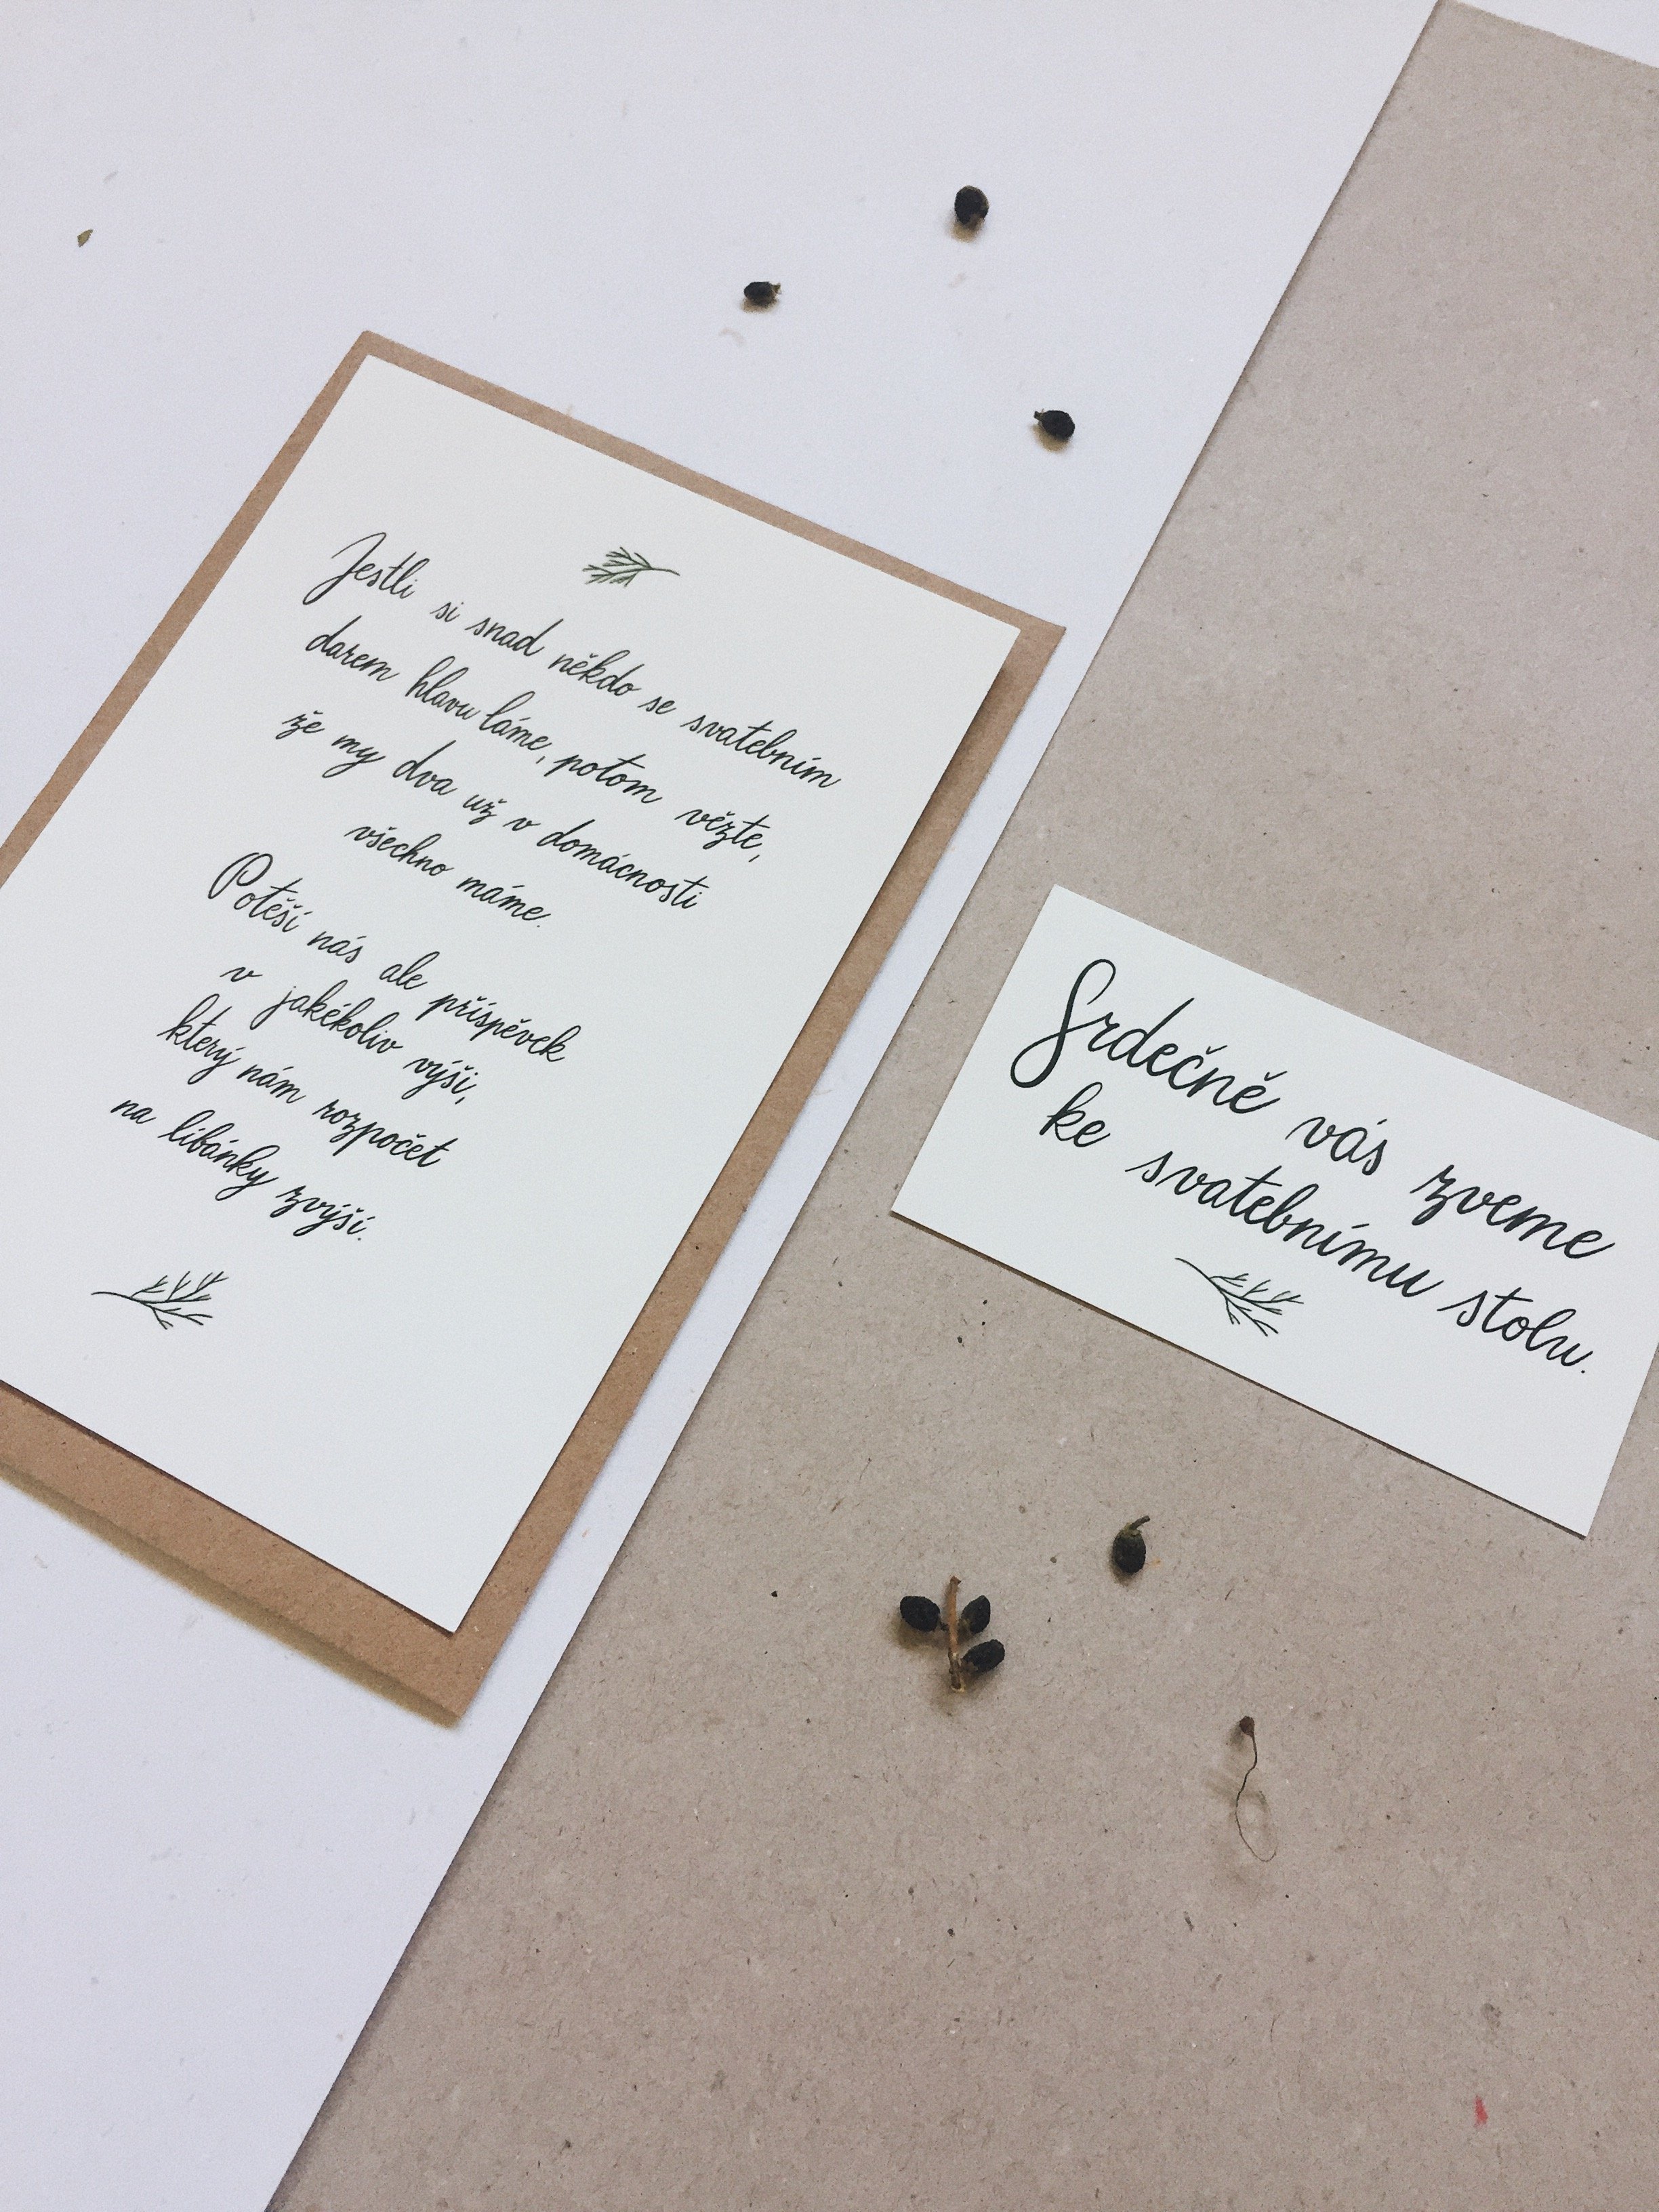 Jestli si snad někdo se svatebním
darem hlavu láme, potom vězte,
že my dva už v domácnosti
všechno máme.
Potěší nás ale příspěvek
v jakékoliv výši,
který nám rozpočet
na líbánky zvýší.
Srdečně vás zveme
ke svatebnímu stolu.